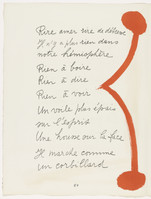 Rire amer rire de détresse
Il n'y a plus rien dans
notre hémisphère
Rien à boire
Rien à dire
Rien à voir
Un voile plus épais
sur l'esprit
Une housse sur la face
Je marche comme
un corbillard